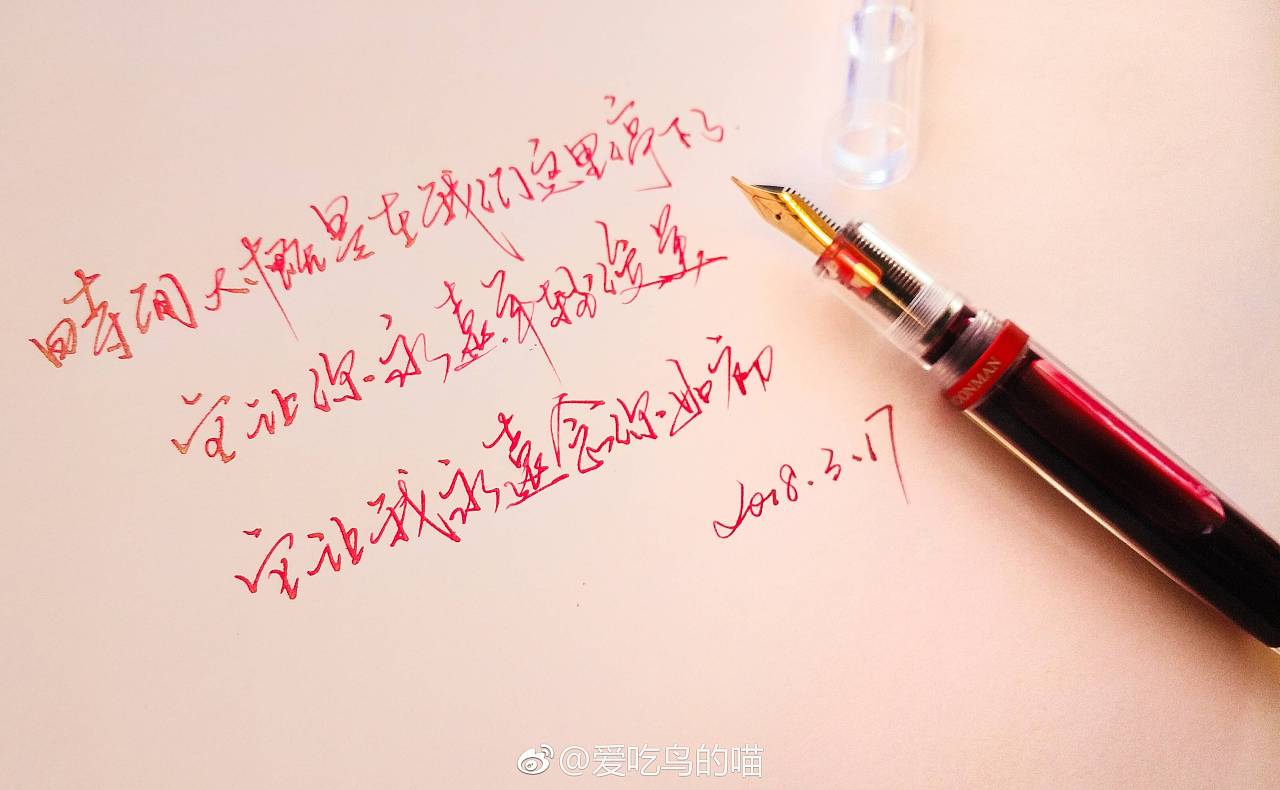 時间大概是在我们这里停下了
它让你永遠年轻俊美
它让我永遠念你如初
2018.3.17
OONMAN
@爱吃鸟的喵